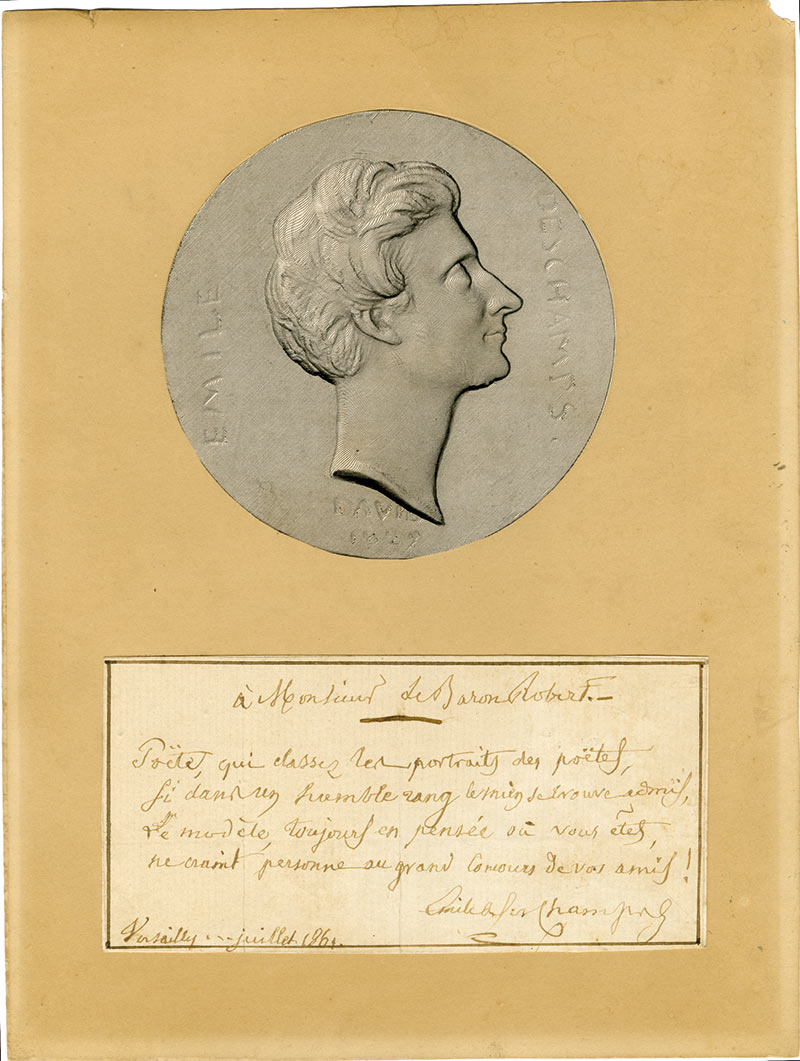 EMILE
DESCHAMPS.
DAVID
1829
à Monsieur le Baron Robert. —
Poëte, qui classez les portraits des poëtes,
Si dans un humble rang le mien se trouve admis,
Le modèle, toujours en pensée où vous êtes,
ne craint personne au grand concours de vos amis !
Emile Deschamps
Versailles juillet 1861.